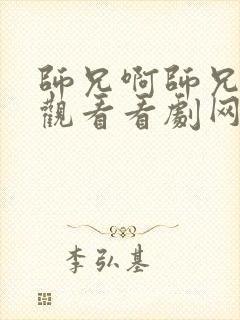 師兄啊師兄
觀看看劇网
李弘基